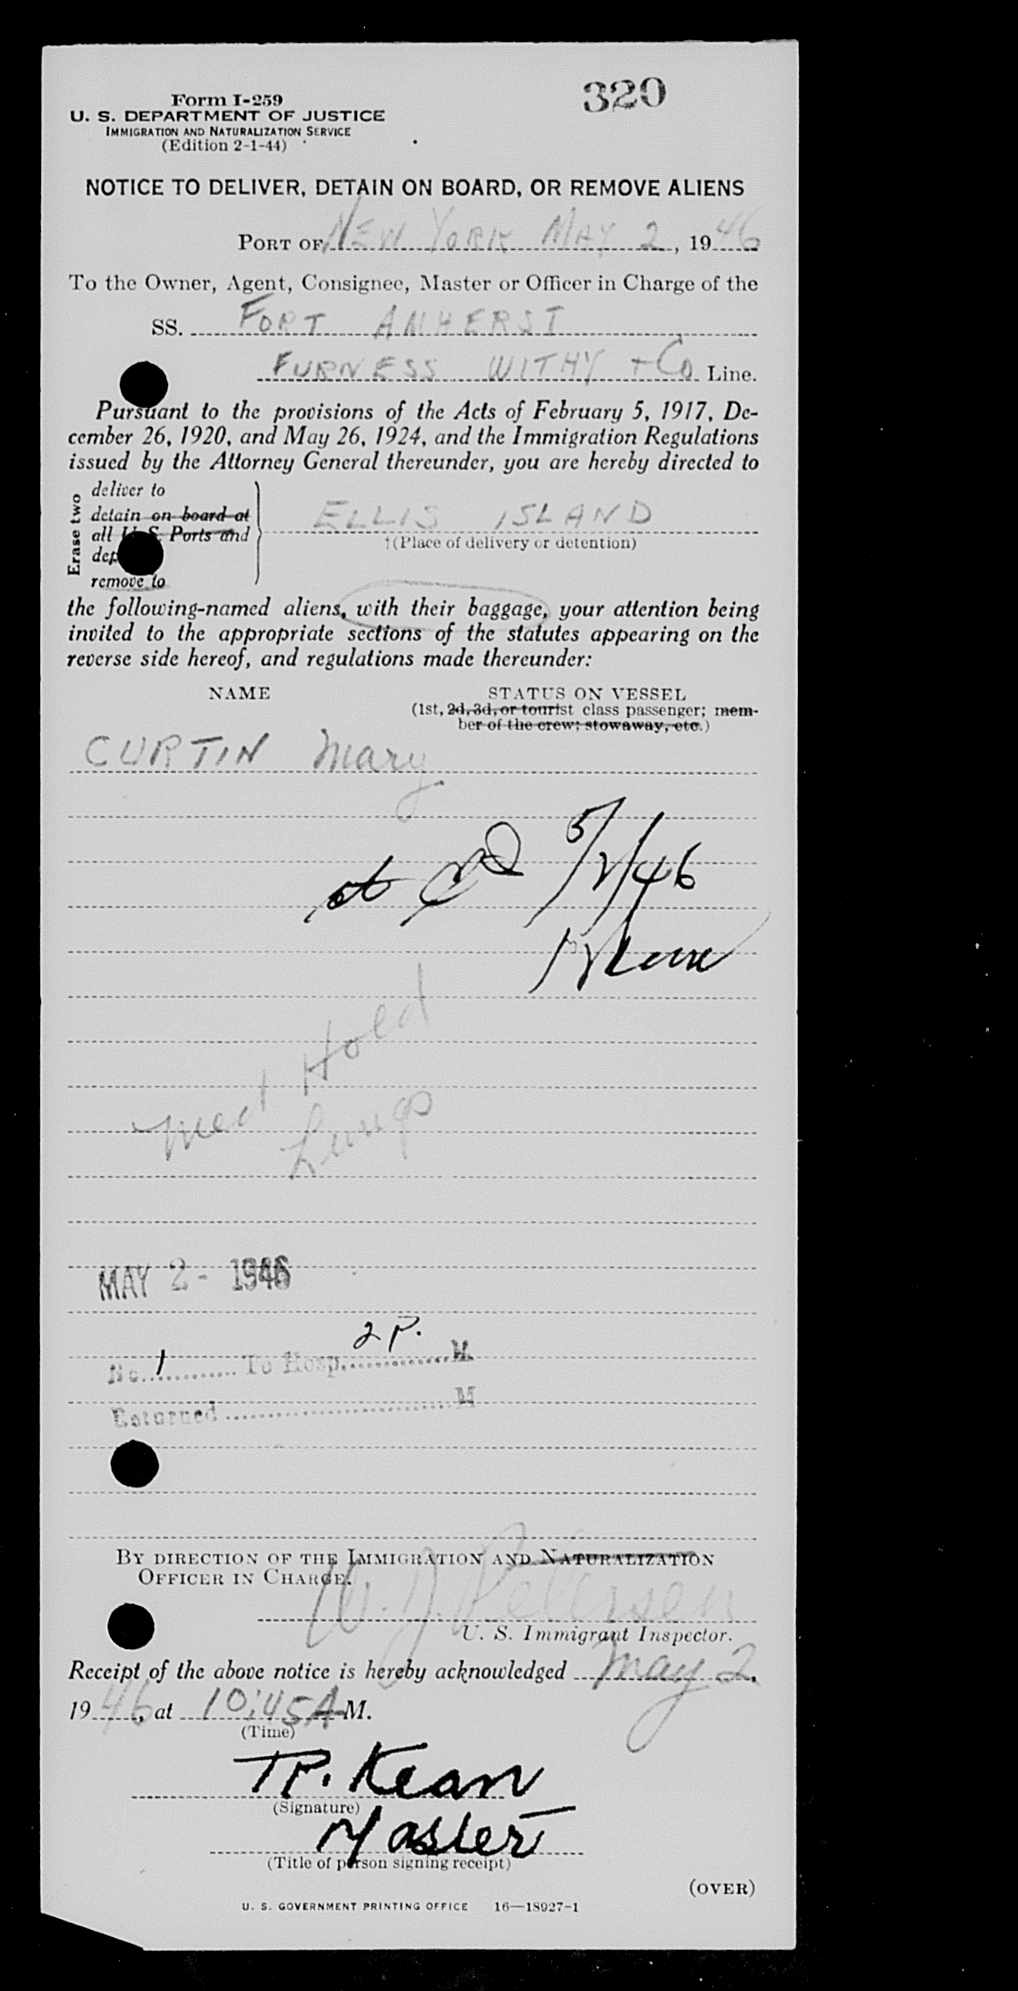 320
Form I-259
U. S. DEPARTMENT OF JUSTICE
IMMIGRATION AND NATURALIZATION SERVICE
(Edition 2-1-44)
NOTICE TO DELIVER, DETAIN ON BOARD, OR REMOVE ALIENS
PORT OF NEW YORK MAY 2, 1946
To the Owner, Agent, Consignee, Master or Officer in Charge of the
SS. FORT AMHERST
FURNESS WITHY + Co Line.
Pursuant to the provisions of the Acts of February 5, 1917, De-
cember 26, 1920, and May 26, 1924, and the Immigration Regulations
issued by the Attorney General thereunder, you are hereby directed to
Erase two
deliver to
detain on board at
all U. S. Ports and
remove to
ELLIS ISLAND
†(Place of delivery or detention)
the following-named aliens, with their baggage, your attention being
invited to the appropriate sections of the statutes appearing on the
reverse side hereof, and regulations made thereunder:
NAME STATUS ON VESSEL
(1st, 2d, 3d, or tourist class passenger; mem-
ber of the crew; stowaway, etc.)
CURTIN Mary
5/2/46
Med Hold
Lungs
MAY 2 - 1946
2 P.
No. 1 To Hosp. M.
Returned M
BY DIRECTION OF THE IMMIGRATION AND NATURALIZATION
OFFICER IN CHARGE.
W. J. Petersen
U. S. Immigrant Inspector.
Receipt of the above notice is hereby acknowledged May 2,
1946, at 10:45 A M.
(Time)
T.P. Kean
(Signature)
Master
(Title of person signing receipt)
(OVER)
U. S. GOVERNMENT PRINTING OFFICE 16—18927-1